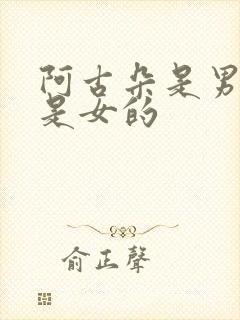 阿古朵是男
是女的
俞正聲